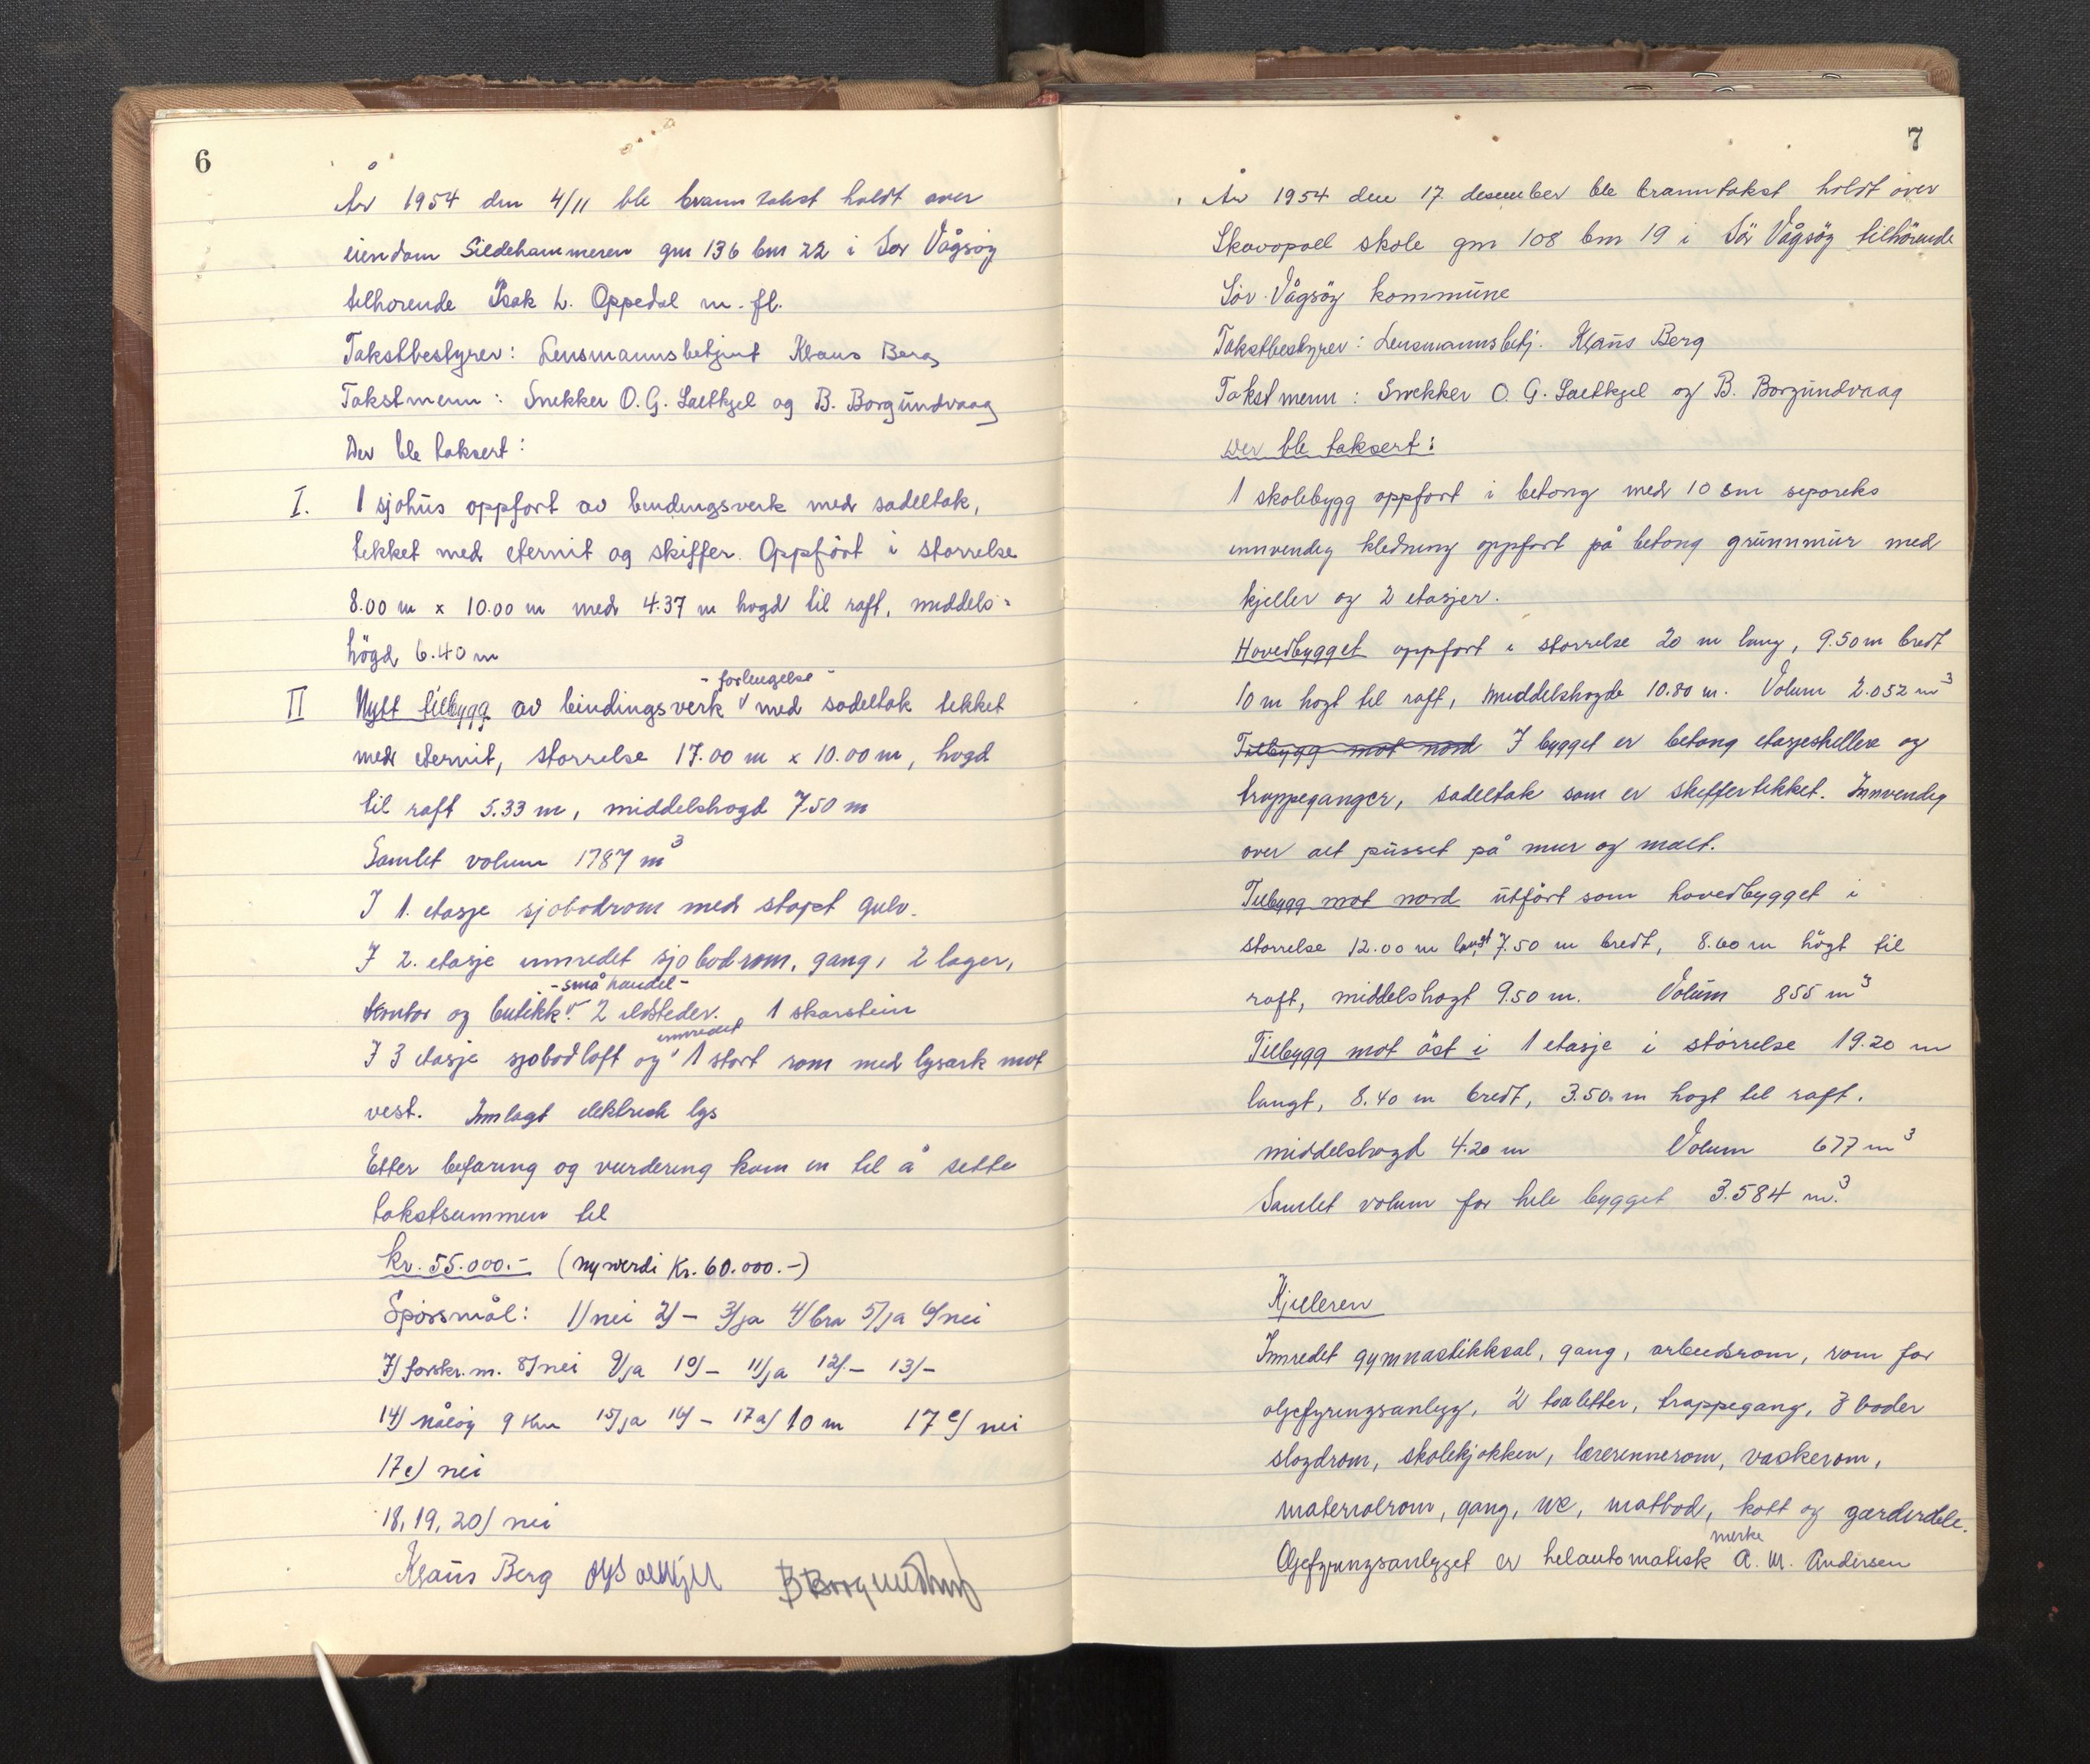 6
År 1954 den 4/11 ble branntakst holdt over
eiendom Sildehammeren gnr 136 bnr 22 i Sør Vågsøy
tilhørende Isak L. Oppedal m. fl.
Takstbestyrer: Lensmannsbetjent Klaus Berg
Takstmenn: Snekker O. G. Saltkjel og B. Borgundvaag
Der ble taksert:
I. 1 sjøhus oppført av bindingsverk med sadeltak,
tekket med eternit og skiffer. Oppført i størrelse
8.00 m x 10.00 m med 4.37 m høgd til raft, middels-
høgd 6.40 m
- forlengelse -
II Nytt tilbygg av bindingsverk med sadeltak tekket
med eternit, størrelse 17.00 m x 10.00 m, høgd
til raft 5.33 m, middelshøgd 7.50 m
Samlet volum 1787 m3
I 1. etasje sjøbodrom med støpt gulv.
I 2. etasje innredet sjøbodrom, gang, 2 lager,
- små handel -
kontor og butikk. 2 ildsteder. 1 skorstein
innredet
I 3 etasje sjøbodloft og 1 stort rom med lysark mot
vest. Innlagt elektrisk lys
Etter befaring og vurdering kom en til å sette
takstsummen til
kr. 55.000.- (nyverdi Kr. 60.000.-)
Spørsmål: 1) nei 2) - 3) ja 4) bra 5) ja 6) nei
7) forskr. m. 8) nei 9) ja 10) - 11) ja 12) - 13) -
14) Måløy 9 km 15) ja 16) - 17a) 10 m 17c) nei
17e) nei
18, 19, 20) nei
Klaus Berg OGSaltkjel B Borgundvaag
7
År 1954 den 17. desember ble branntakst holdt over
Skavøpoll skole gnr 108 bnr 19 i Sør Vågsøy tilhørende
Sør-Vågsøy kommune
Takstbestyrer: Lensmannsbetj. Klaus Berg
Takstmenn: Snekker O. G. Saltkjel og B. Borgundvaag
Der ble taksert:
1 skolebygg oppført i betong med 10 cm seporeks
innvendig kledning oppført på betong grunnmur med
kjeller og 2 etasjer.
Hovedbygget oppført i størrelse 20 m lang, 9.50 m bredt
10 m høgt til raft, middelshøgde 10.80 m. Volum 2.052 m3
Tilbygg mot nord I bygget er betong etasjeskiller og
trappeganger, sadeltak som er skiffertekket. Innvendig
over alt pusset på mur og malt.
Tilbygg mot nord utført som hovedbygget i
størrelse 12.00 m langt, 7.50 m bredt, 8.60 m høgt til
raft, middelshøgt 9.50 m. Volum 855 m3
Tilbygg mot øst i 1 etasje i størrelse 19.20 m
langt, 8.40 m bredt, 3.50 m høgt til raft.
middelshøgd 4.20 m Volum 677 m3
Samlet volum for hele bygget 3.584 m3.
Kjelleren
Innredet gymnastikksal, gang, arbeidsrom, rom for
oljefyringsanlegg, 2 toaletter, trappegang, 3 boder
sløydrom, skolekjøkken, lærerinnerom, vaskerom,
materialrom, gang, wc, matbod, kott og
merke
Oljefyringsanlegget er helautomatisk A. M. Andersen